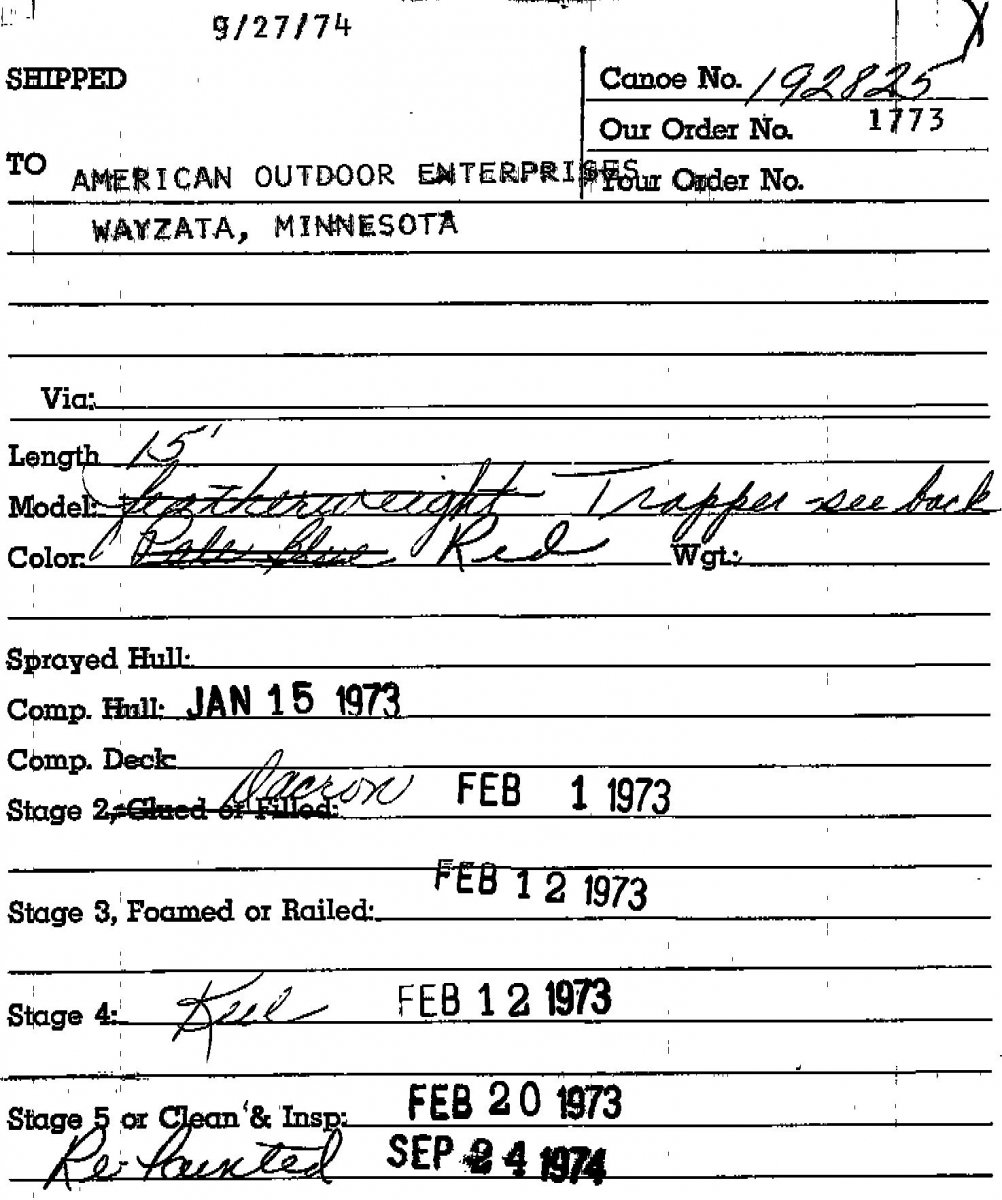 9/27/74
SHIPPED
Canoe No. 192825
Our Order No. 1773
TO AMERICAN OUTDOOR ENTERPRISES
Your Order No.
WAYZATA, MINNESOTA
Via:
Length 15'
Model: featherweight Trapper - see back
Color: Pale Blue Red Wgt.:
Sprayed Hull:
Comp. Hull: JAN 15 1973
Comp. Deck:
Stage 2, Glued or Filled: Dacron FEB 1 1973
Stage 3, Foamed or Railed: FEB 12 1973
Stage 4: Keel FEB 12 1973
Stage 5 or Clean & Insp: FEB 20 1973
Re-Painted SEP 24 1974